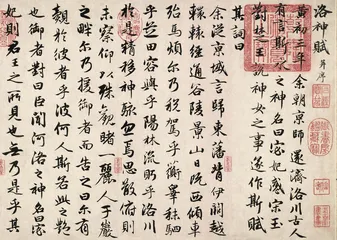 洛神賦 并序
黄初三年余朝京師還濟洛川古人
有言斯水之神名曰宓妃感宋玉
對楚王說神女之事遂作斯賦
其詞曰
余從京域言歸東藩背伊闕越
轘轅經通谷陵景山日既西傾車
殆馬煩尒乃稅駕乎蘅皋秣駟
乎芝田容與乎陽林流眄乎洛川
於是精移神駭忽焉思散俯則
未察仰以殊觀睹一麗人于巖
之畔尒乃援御者而告之曰尒有
覿於彼者乎彼何人斯若此之艷
也御者對曰臣聞河洛之神名曰宓
妃則君王之所見也無乃是乎其